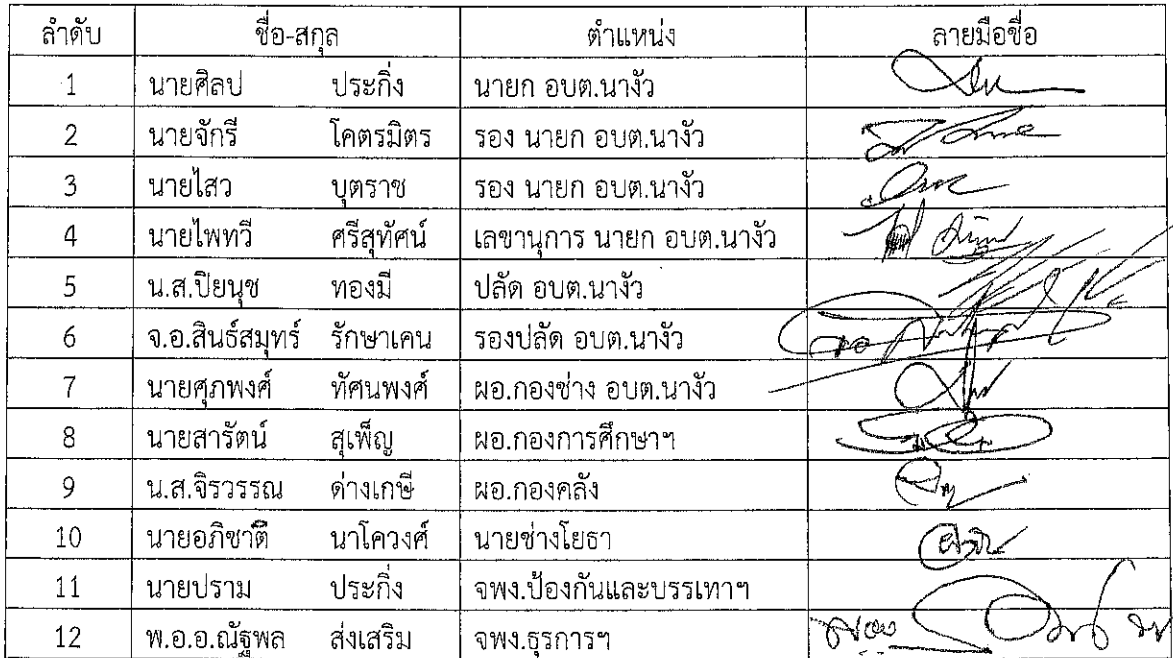 ลำดับ ชื่อ-สกุล ตำแหน่ง ลายมือชื่อ
1 นายศิลป ประกิ่ง นายก อบต.นางัว
2 นายจักรี โคตรมิตร รอง นายก อบต.นางัว
3 นายไสว บุตราช รอง นายก อบต.นางัว
4 นายไพทวี ศรีสุทัศน์ เลขานุการ นายก อบต.นางัว
5 น.ส.ปิยนุช ทองมี ปลัด อบต.นางัว
6 จ.อ.สินธ์สมุทร์ รักษาเคน รองปลัด อบต.นางัว
7 นายศุภพงศ์ ทัศนพงศ์ ผอ.กองช่าง อบต.นางัว
8 นายสารัตน์ สุเพ็ญ ผอ.กองการศึกษาฯ
9 น.ส.จิรวรรณ ด่างเกษี ผอ.กองคลัง
10 นายอภิชาติ นาโควงศ์ นายช่างโยธา
11 นายปราม ประกิ่ง จพง.ป้องกันและบรรเทาฯ
12 พ.อ.อ.ณัฐพล ส่งเสริม จพง.ธุรการฯ